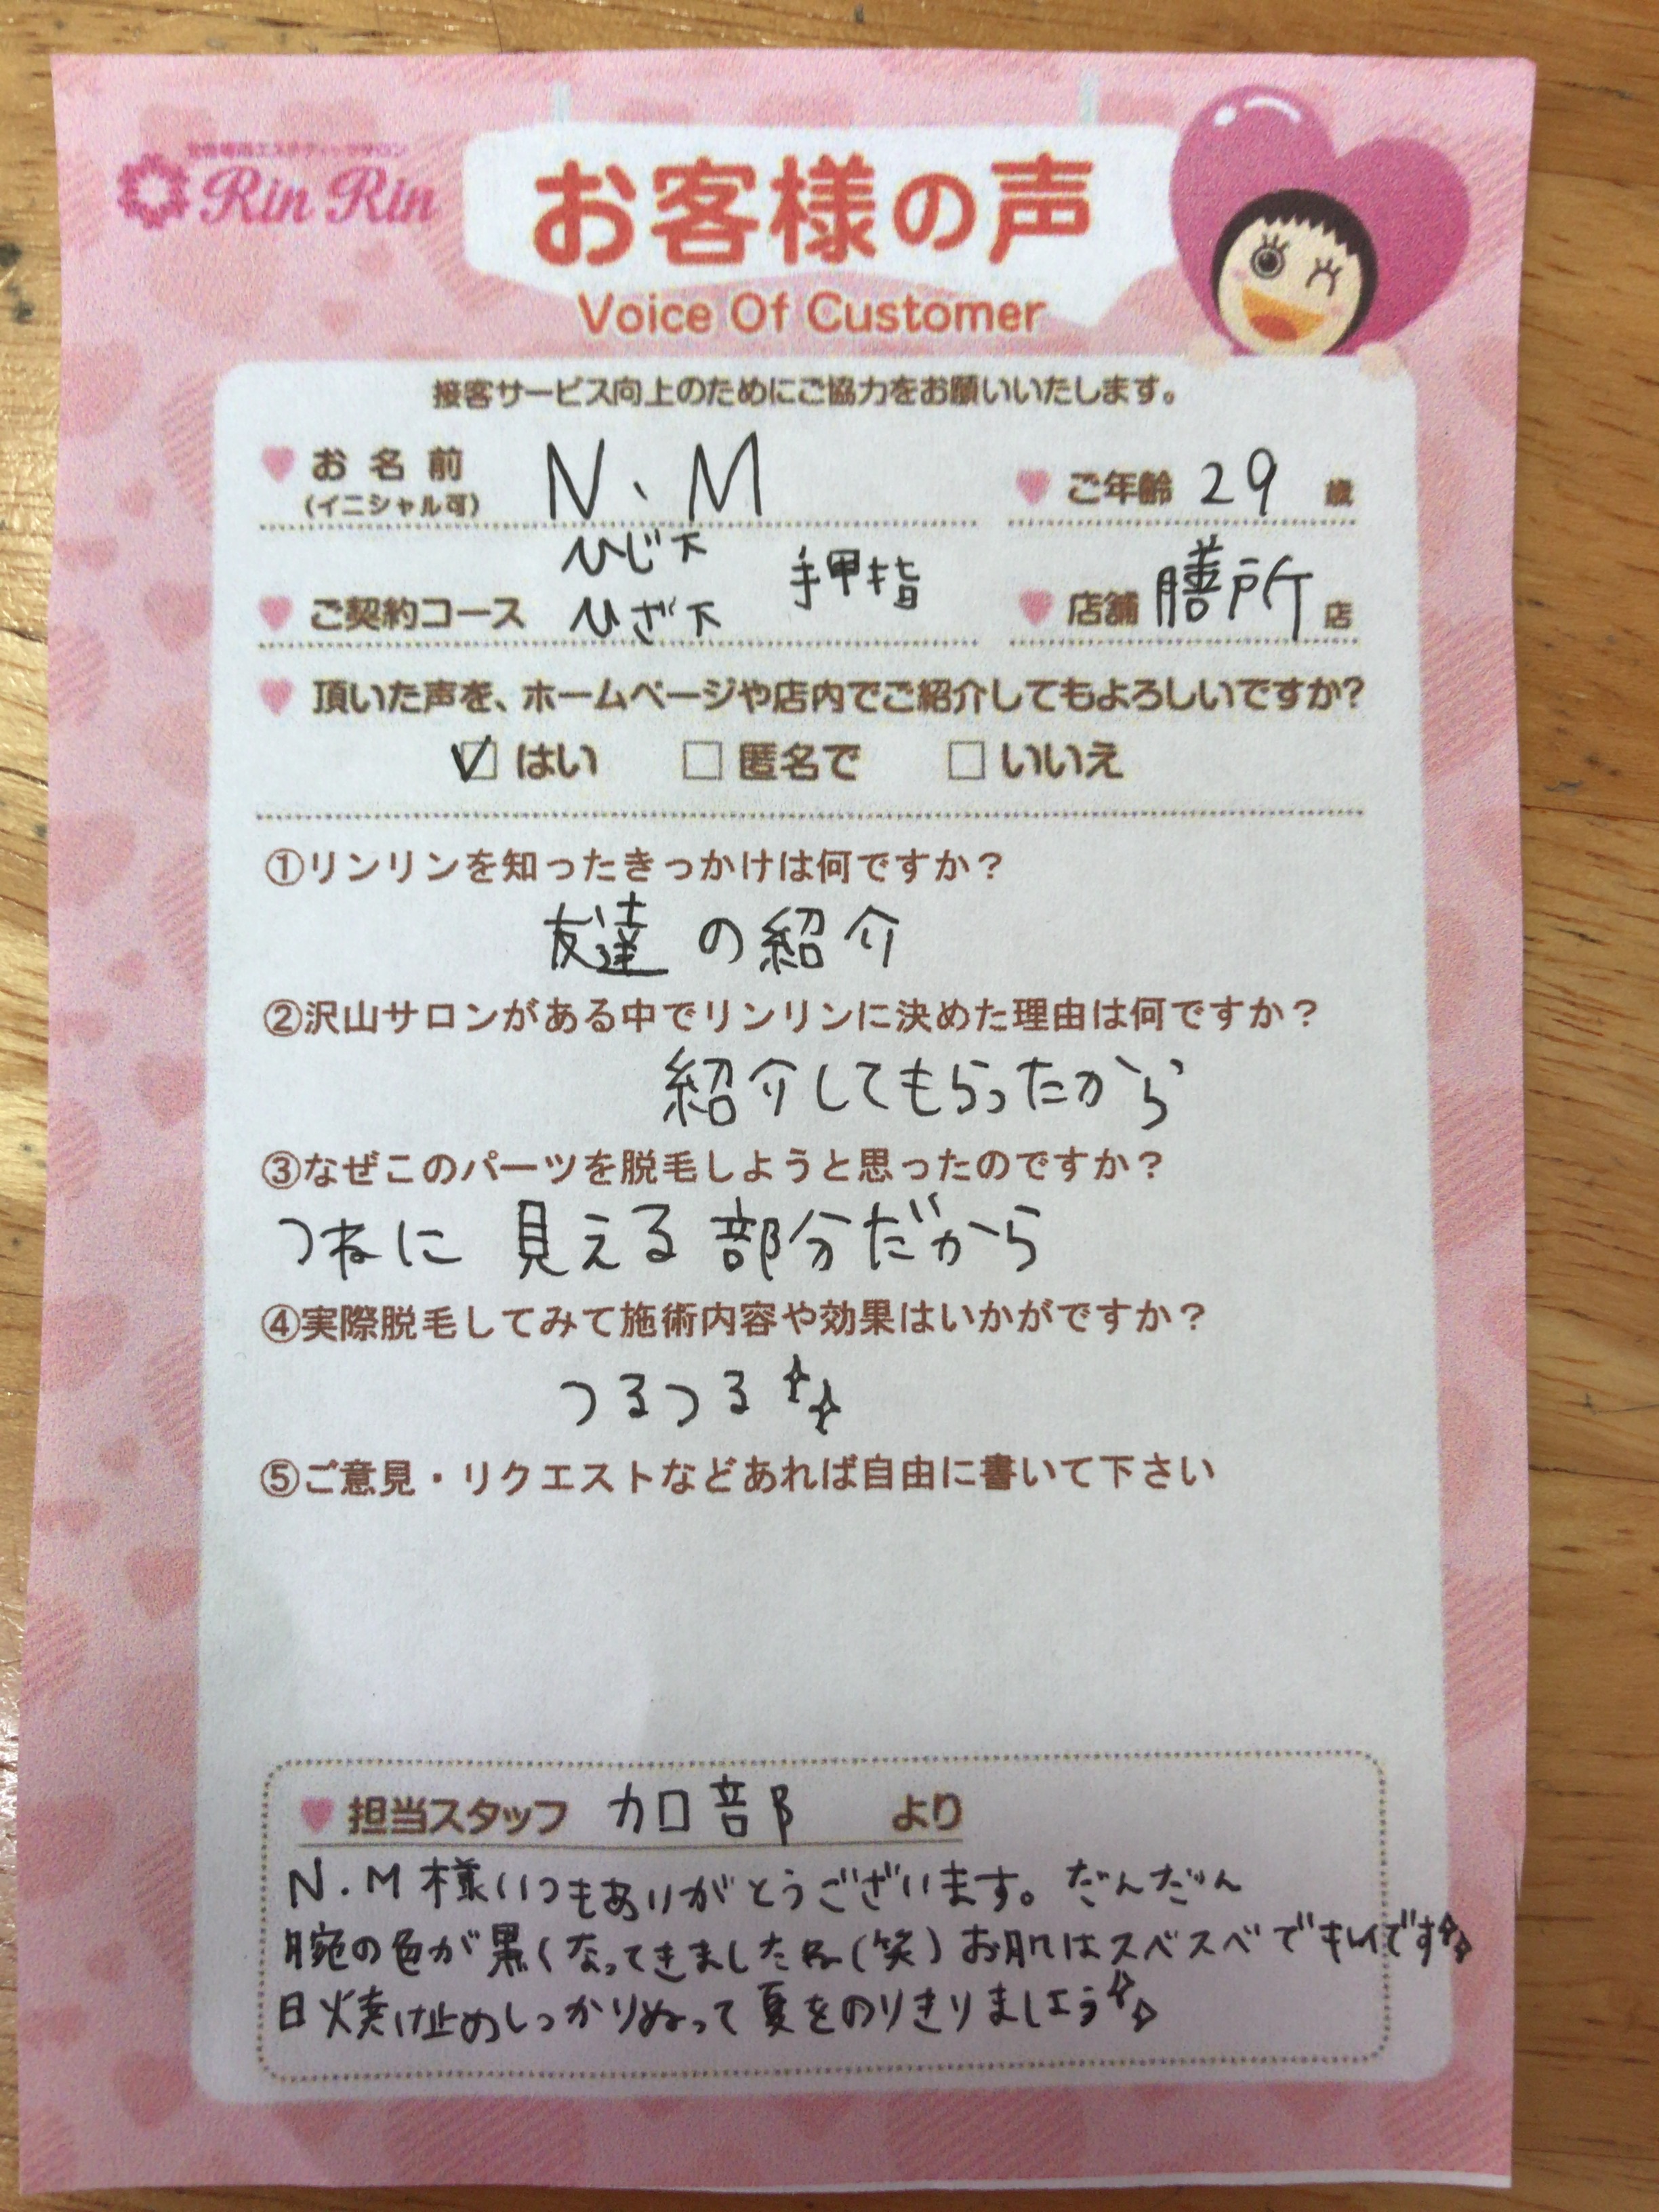 女性専用エステティックサロン
Rin Rin
お客様の声
Voice Of Customer
接客サービス向上のためにご協力をお願いいたします。
お名前 N、M ご年齢 29 歳
(イニシャル可)
ひじ下 手甲指
ご契約コース ひざ下 店舗 膳所 店
頂いた声を、ホームページや店内でご紹介してもよろしいですか?
はい 匿名で いいえ
①リンリンを知ったきっかけは何ですか？
友達の紹介
②沢山サロンがある中でリンリンに決めた理由は何ですか？
紹介してもらったから
③なぜこのパーツを脱毛しようと思ったのですか？
つねに 見える部分だから
④実際脱毛してみて施術内容や効果はいかがですか？
つるつる
⑤ご意見・リクエストなどあれば自由に書いて下さい
担当スタッフ 加部 より
N.M様いつもありがとうございます。だんだん
腕の色が黒くなってきましたね(笑)お肌はスベスベでキレイです
日焼け止めしっかりぬって夏をのりきりましょう